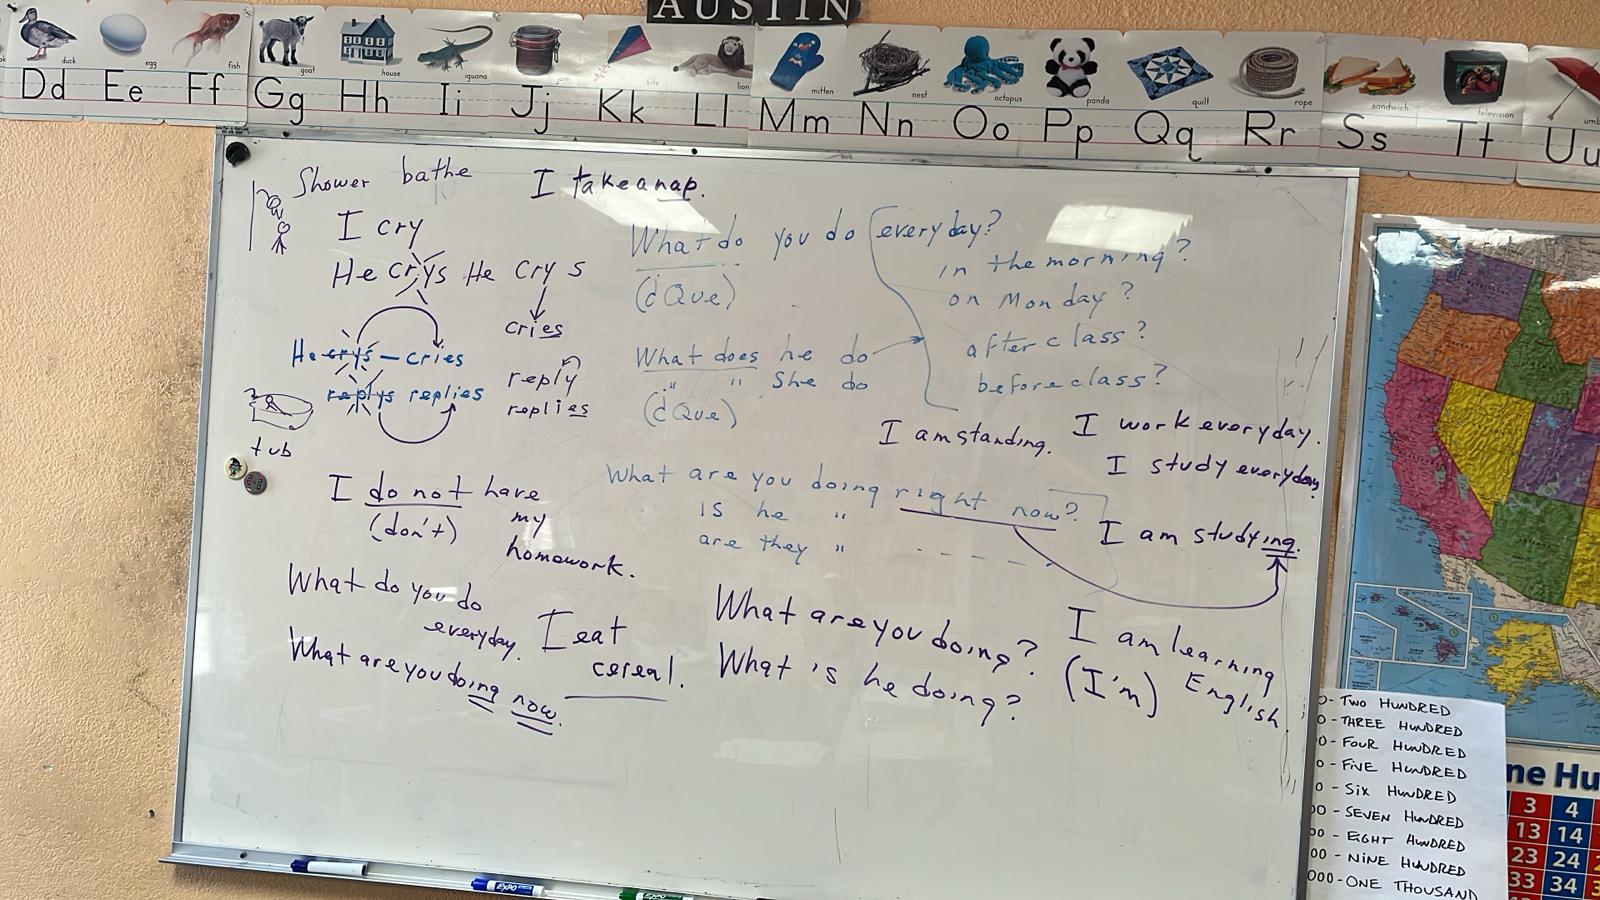 AUSTIN
duck
egg
fish
goat
house
iguana
jam
kite
lion
mitten
nest
octopus
panda
quilt
rope
sandwich
television
Dd Ee Ff Gg Hh Ii Jj Kk Ll Mm Nn Oo Pp Qq Rr Ss Tt Uu
Shower bathe I take a nap.
I cry
He crys He cry s
cries
He crys – cries
replys replies
reply
replies
tub
What do you do everyday?
in the morning?
(d Que)
on Monday?
What does he do
after class?
" " She do
before class?
(d Que)
I am standing.
I work everyday.
I study everyday.
What are you doing right now?
IS he "
are they " - - - -
I am studying.
I do not have
(don't) my
homework.
What do you do
everyday.
I eat
cereal.
What are you doing now.
What are you doing?
What is he doing?
I am learning
(I'm) English
0- TWO HUNDRED
0- THREE HUNDRED
0- FOUR HUNDRED
0- FIVE HUNDRED
0 - SIX HUNDRED
00 - SEVEN HUNDRED
00 - EIGHT HUNDRED
00 - NINE HUNDRED
000 - ONE THOUSAND
ne Hu
3 4
13 14
23 24
33 34